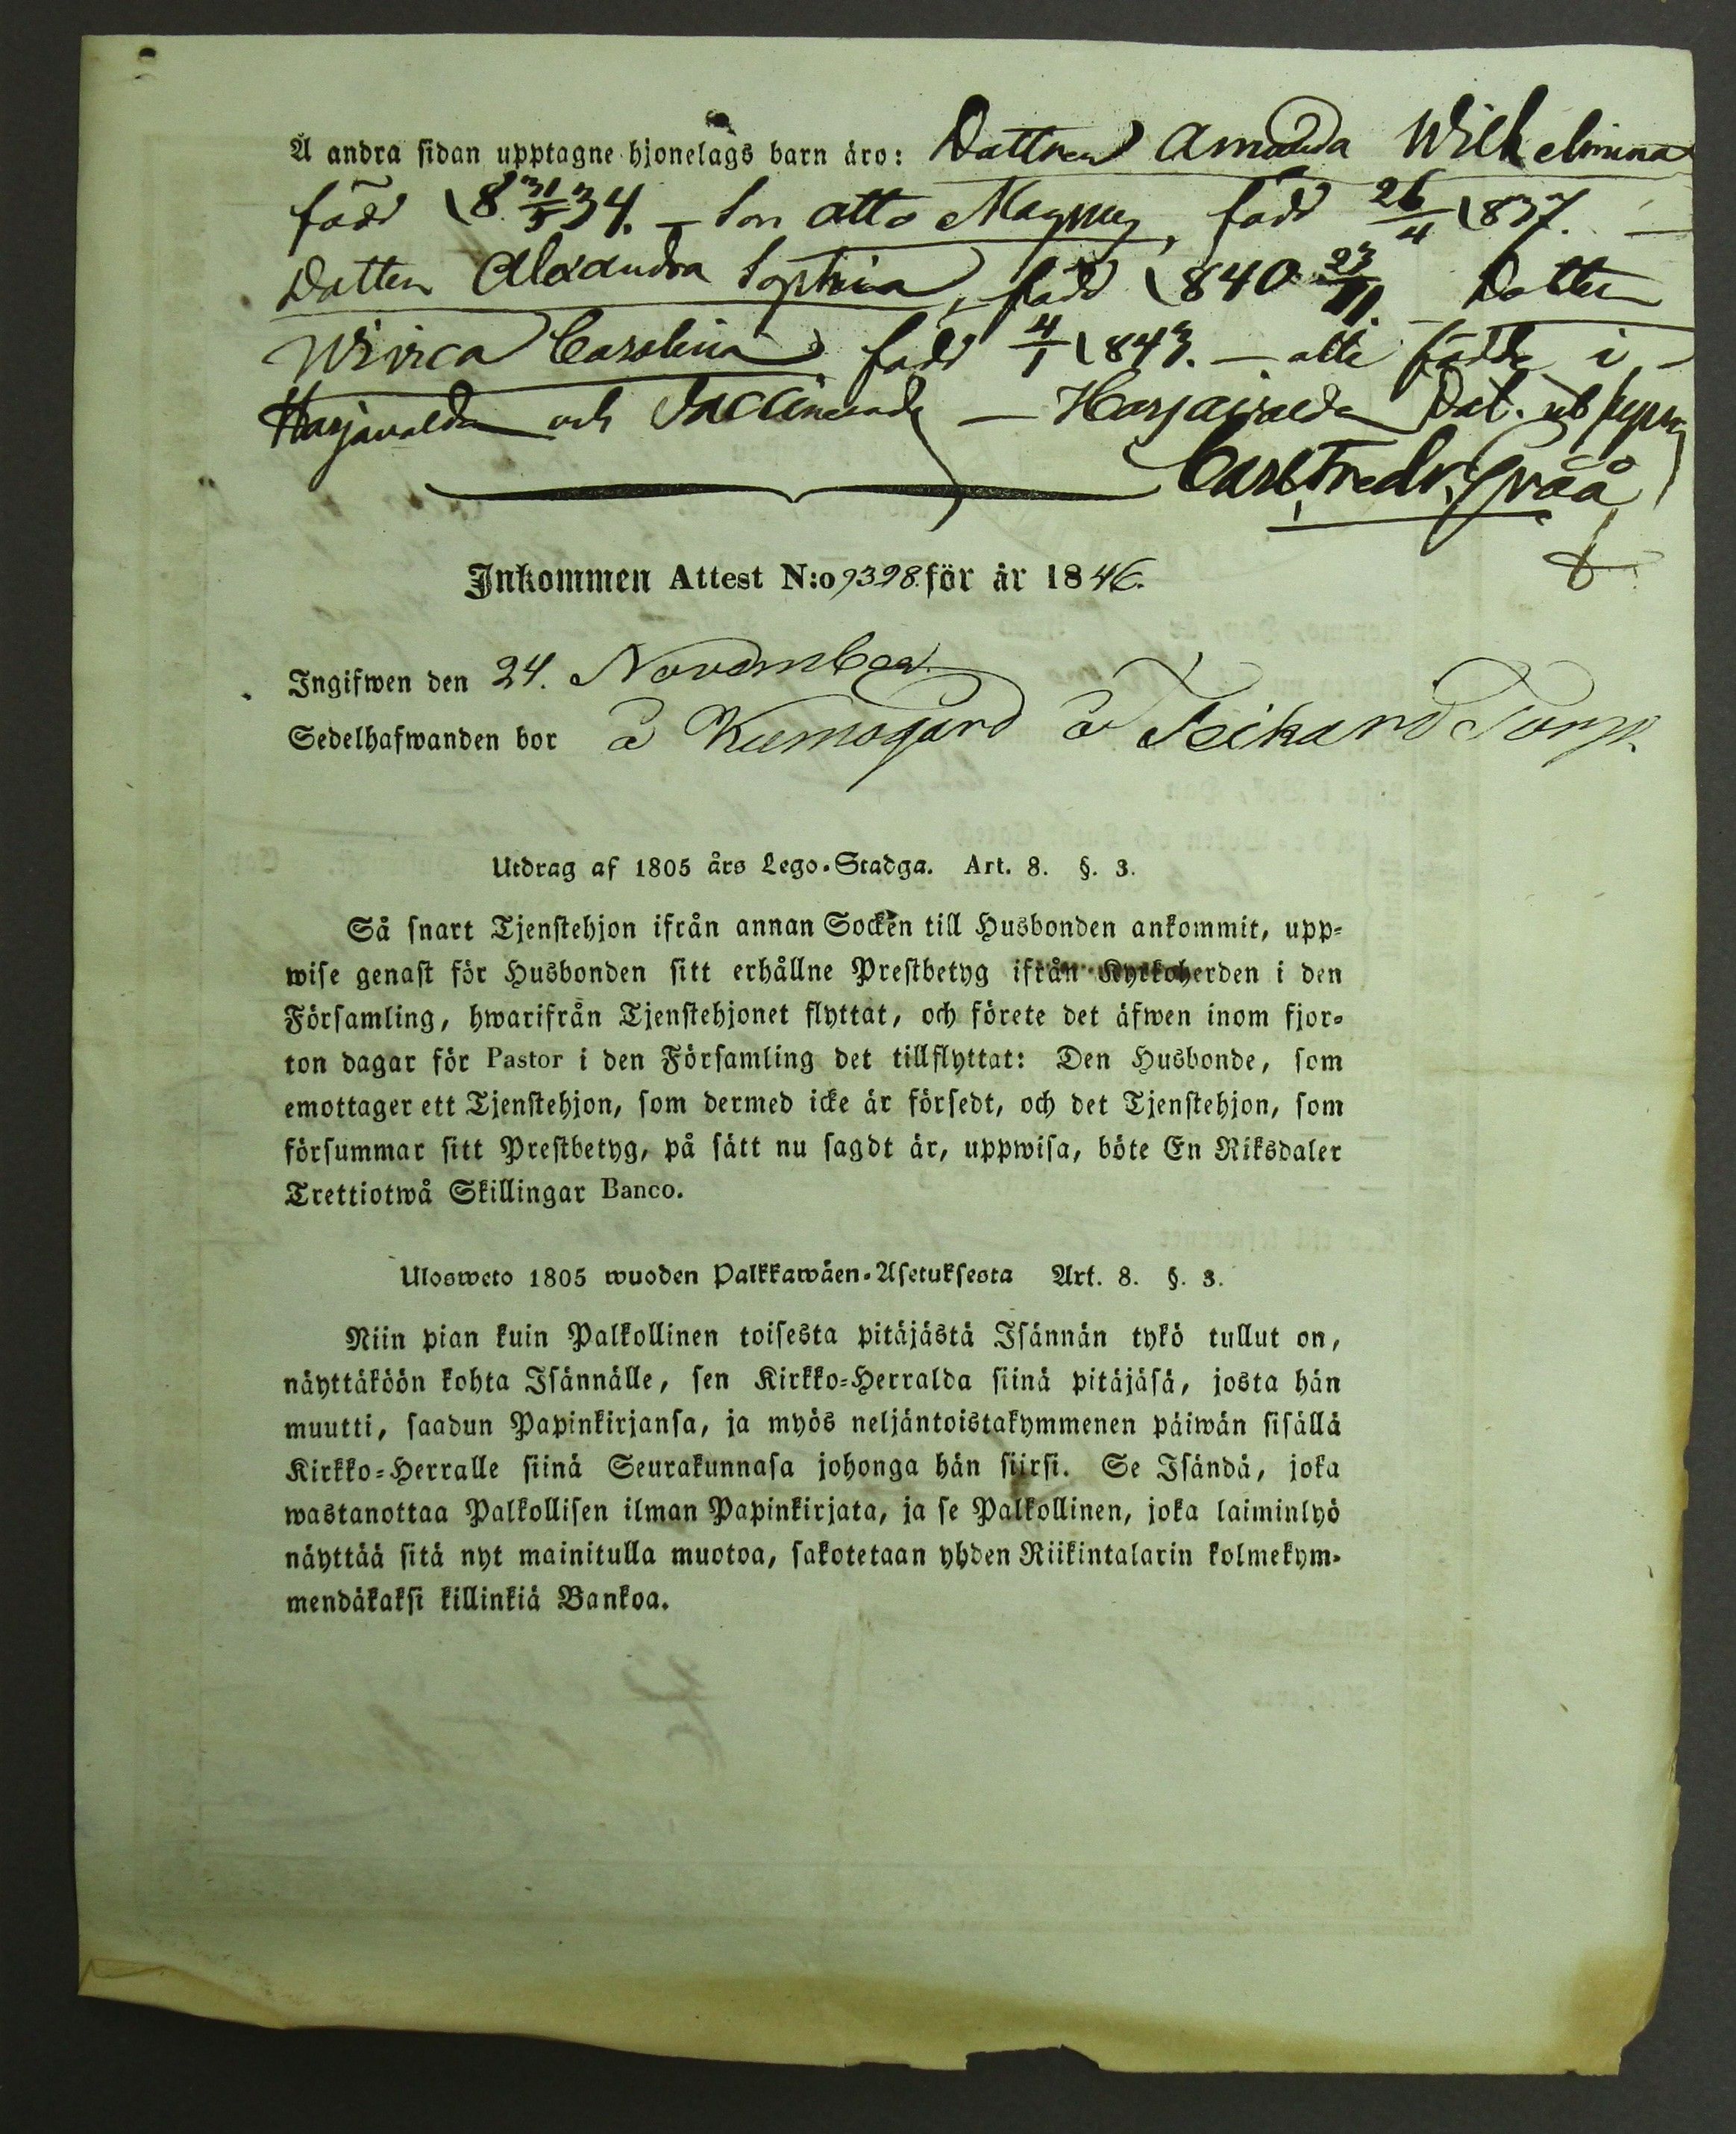 Å andra sidan upptagne hjonelags barn äro: Dottren Amanda Wilhelmina
född 18 31/5 34. – Son Otto Magnus, född 26/4 1837. –
Dottren Alexandra Sophia, född 1840 23/11. Dottren
Wivica Carolina född 4/1 1843. – alla födde i
Harjavalda och Vaccinerade – Harjavalda Dat. ut supra
Carl Fredr. Gråå
Inkommen Attest N:o 9398 för år 1846.
Ingifwen den 24. November
Sedelhafwanden bor å Kumogård å Teikars Torp.
Utdrag af 1805 års Lego-Stadga. Art. 8. §. 3.
Så snart Tjenstehjon ifrån annan Socken till Husbonden ankommit, upp-
wise genast för Husbonden sitt erhållne Prestbetyg ifrån Kyrkoherden i den
Församling, hwarifrån Tjenstehjonet flyttat, och förete det äfwen inom fjor-
ton dagar för Pastor i den Församling det tillflyttat: Den Husbonde, som
emottager ett Tjenstehjon, som dermed icke är försedt, och det Tjenstehjon, som
försummar sitt Prestbetyg, på sätt nu sagdt är, uppwisa, böte En Riksdaler
Trettiotwå Skillingar Banco.
Ulosweto 1805 wuoden Palkkawäen-Asetuksesta Art. 8. §. 3.
Niin pian kuin Palkollinen toisesta pitäjästä Isännän tykö tullut on,
näyttäköön kohta Isännälle, sen Kirkko-Herralda siinä pitäjäsä, josta hän
muutti, saadun Papinkirjansa, ja myös neljäntoistakymmenen päiwän sisällä
Kirkko-Herralle siinä Seurakunnasa johonga hän siirsi. Se Isändä, joka
wastanottaa Palkollisen ilman Papinkirjata, ja se Palkollinen, joka laiminlyö
näyttää sitä nyt mainitulla muotoa, sakotetaan yhden Riikintalarin kolmekym-
mendäkaksi killinkiä Bankoa.